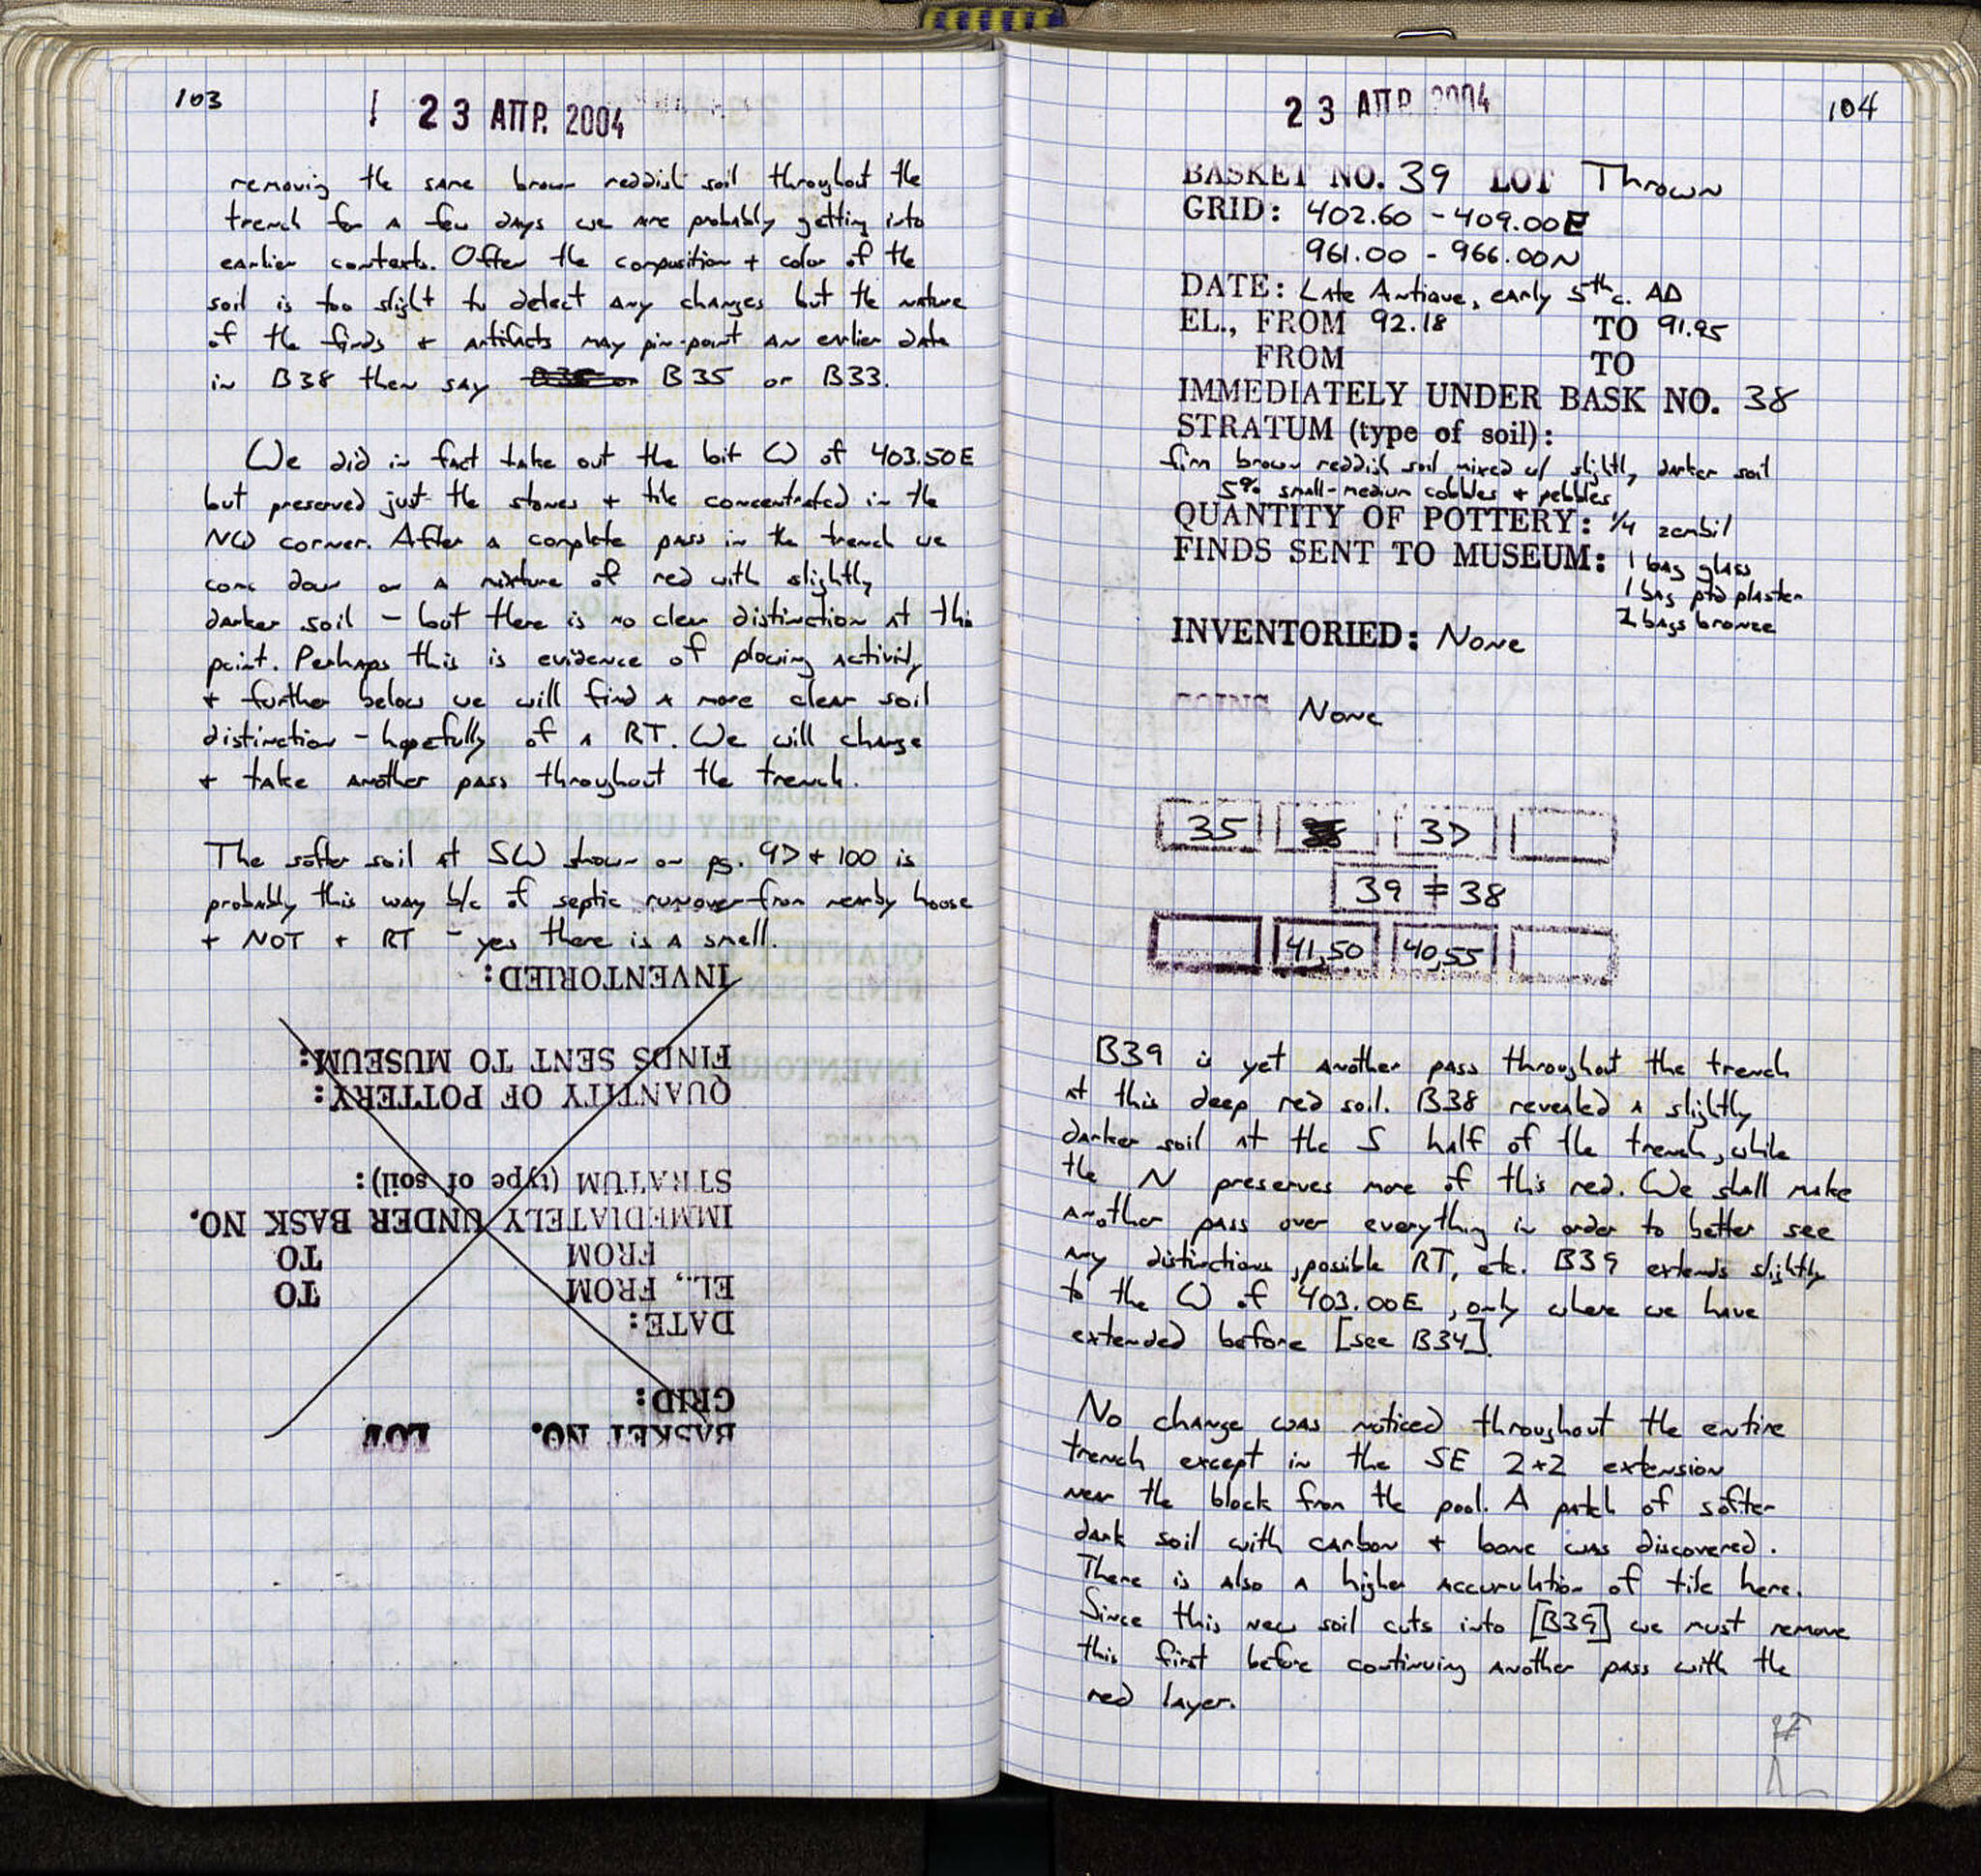 103
! 23 ΑΠΡ. 2004
removing the same brown reddish soil throughout the
trench for a few days we are probably getting into
earlier contexts. Often the composition + color of the
soil is too slight to detect any changes but the nature
of the finds + artifacts may pin-point an earlier date
in B38 then say B35 or B33.
We did in fact take out the bit W of 403.50E
but preserved just the stones + tile concentrated in the
NW corner. After a complete pass in the trench we
come down on a mixture of red with slightly
darker soil - but there is no clear distinction at this
point. Perhaps this is evidence of plowing activity
+ further below we will find a more clear soil
distinction - hopefully of a RT. We will change
+ take another pass throughout the trench.
The softer soil at SW shown on pg. 97 + 100 is
probably this way b/c of septic runover from nearby house
+ NOT a RT - yes there is a smell.
INVENTORIED:
FINDS SENT TO MUSEUM:
QUANTITY OF POTTERY:
STRATUM (type of soil):
IMMEDIATELY UNDER BASK NO.
FROM TO
EL., FROM TO
DATE:
GRID:
BASKET NO. LOT
23 ΑΠΡ. 2004
104
BASKET NO. 39 LOT Thrown
GRID: 402.60 - 409.00E
961.00 - 966.00N
DATE: Late Antique, early 5th c. AD
EL., FROM 92.18 TO 91.95
FROM TO
IMMEDIATELY UNDER BASK NO. 38
STRATUM (type of soil):
firm brown reddish soil mixed w/ slightly darker soil
5% small-medium cobbles + pebbles
QUANTITY OF POTTERY: 1/4 zembil
FINDS SENT TO MUSEUM: 1 bag glass
1 bag ptd plaster
2 bags bronze
INVENTORIED: None
COINS None
35 37
39 = 38
41,50 40,55
B39 is yet another pass throughout the trench
at this deep red soil. B38 revealed a slightly
darker soil at the S half of the trench, while
the N preserves more of this red. We shall make
another pass over everything in order to better see
any distinctions, possible RT, etc. B39 extends slightly
to the W of 403.00E, only where we have
extended before [see B34].
No change was noticed throughout the entire
trench except in the SE 2x2 extension
near the block from the pool. A patch of softer
dark soil with carbon + bone was discovered.
There is also a higher accumulation of tile here.
Since this new soil cuts into [B39] we must remove
this first before continuing another pass with the
red layer.